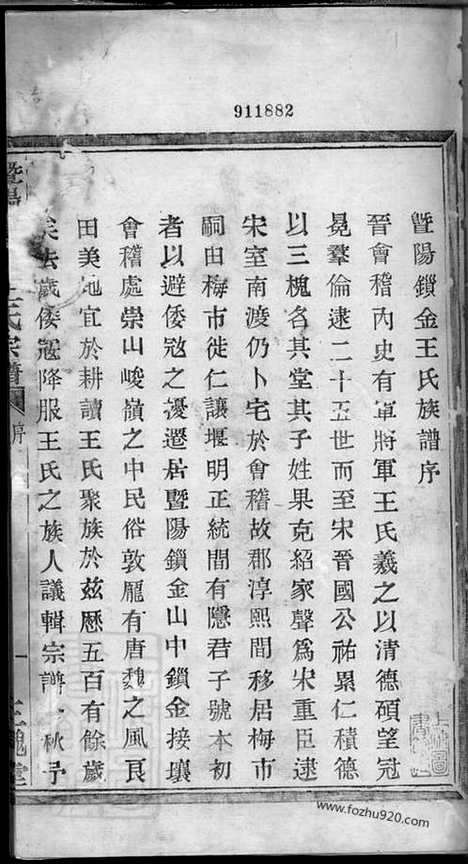 911882
暨陽鎖金王氏族譜序
晉會稽內史右軍將軍王氏羲之以清德碩望冠
冕羣倫逮二十五世而至宋晉國公祐累仁積德
以三槐名其堂其子姓果克紹家聲爲宋重臣逮
宋室南渡仍卜宅於會稽故郡淳熙間移居梅市
嗣由梅市徙仁讓堰明正統間有隱君子號本初
者以避倭寇之擾遷居暨陽鎖金山中鎖金接壤
會稽處崇山峻嶺之中民俗敦厖有唐魏之風良
田美地宜於耕讀王氏聚族於玆厯五百有餘歲
矣去歲倭寇降服王氏之族人議輯宗譜 秋予
暨陽 王氏宗譜 序
一
三槐堂
www.fozhu920.com